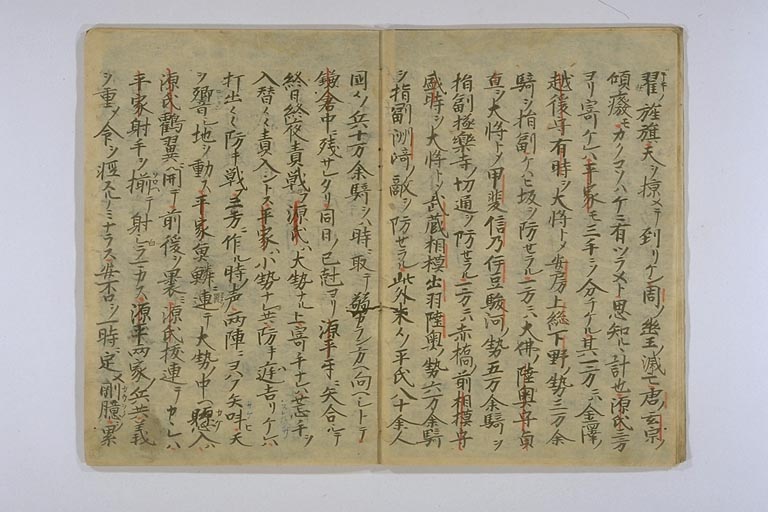 翟ノ旌旗天ヲ掠メテ到リケレ周ノ幽王滅亡唐ノ玄宗ノ
傾廢モカクコソハケニ有ツラメト思知ル計也源氏三方
ヨリ寄ケレハ平家モ三手ヲ分テケル其一方ニハ金澤ノ
越後守有時ヲ大将トメ安房上総下野ノ勢三万余
騎ヲ指副ケハヒ坂ヲ防セラル一方ニハ大佛ノ陸奥守貞
直ヲ大将トメ甲斐信乃伊豆駿河ノ勢五万余騎ヲ
指副極楽寺切通ヲ防セラル一方ニハ赤橋ノ前相模守
盛時ヲ大将トメ武蔵相模出羽陸奥ノ勢六万余騎
ヲ指副洲崎ノ敵ヲ防セラル此外末々ノ平氏八十余人
国々ノ兵十万余騎ヲハ時ニ取テ カラン方ヘ向ヘシトテ
鎌倉中ニ残サレタリ同日ノ巳尅ヨリ源平互ニ矢合シテ
終日終夜責戦フ源氏ハ大勢ナレハ上寄手ハ荒手ヲ
入替々々責入ントス平家ハ小勢ナレ共防キ 吉リケレハ
打出々々防キ戦三方ニ作ル時ノ声両陣ニヨハフ矢叫天
ヲ響シ地ヲ動ス平家魚鱗ニ連テ大勢ノ中ヘ懸入ハ
源氏鶴翼ニ開テ前後ヲ裹ム源氏抜連テカヽレハ
平家射手ヲ揃テ射シラマカス源平両家ノ兵共義
ヲ重メ令ヲ軽スルノミナラス安否ヲ一時ニ定メ剛臆ヲ累